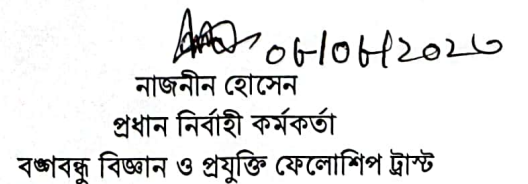 নাজনীন হোসেন
প্রধান নির্বাহী কর্মকর্তা
বঙ্গবন্ধু বিজ্ঞান ও প্রযুক্তি ফেলোশিপ ট্রাস্ট